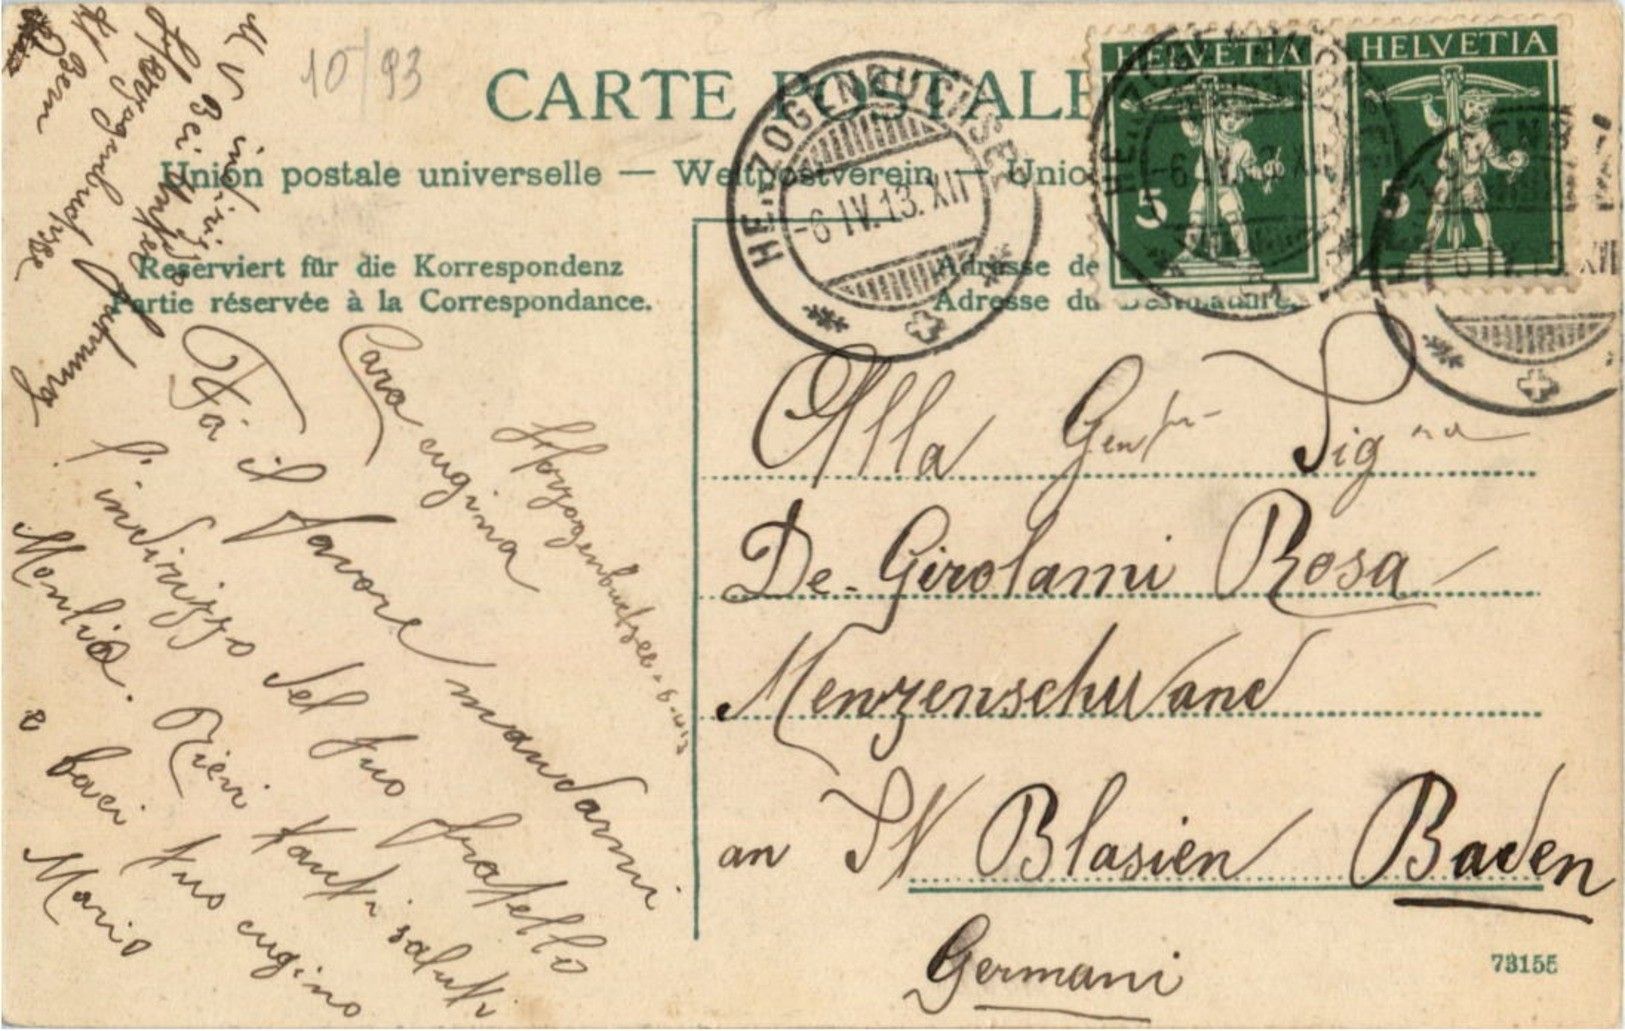 10/93
CARTE POSTALE
Union postale universelle — Weltpostverein — Unio
Reserviert für die Korrespondenz
Partie réservée à la Correspondance.
Adresse de
Adresse du Destinataire.
HELVETIA
5
HELVETIA
5
HERZOGENBUCHSEE
-6.IV.13.XII
Herzogenbuchsee - 6-4-13
Cara cugina
Fa il favore mandarmi
l'indirizzo del tuo fratello
Monlio.
Ricevi tanti saluti
e baci tuo cugino
Mario
indirizzo
bei
Herzogenbuchsee
Bern
Alla Gent Sigra
De-Girolami Rosa
Menzenschwand
an St Blasien Baden
Germani
73155